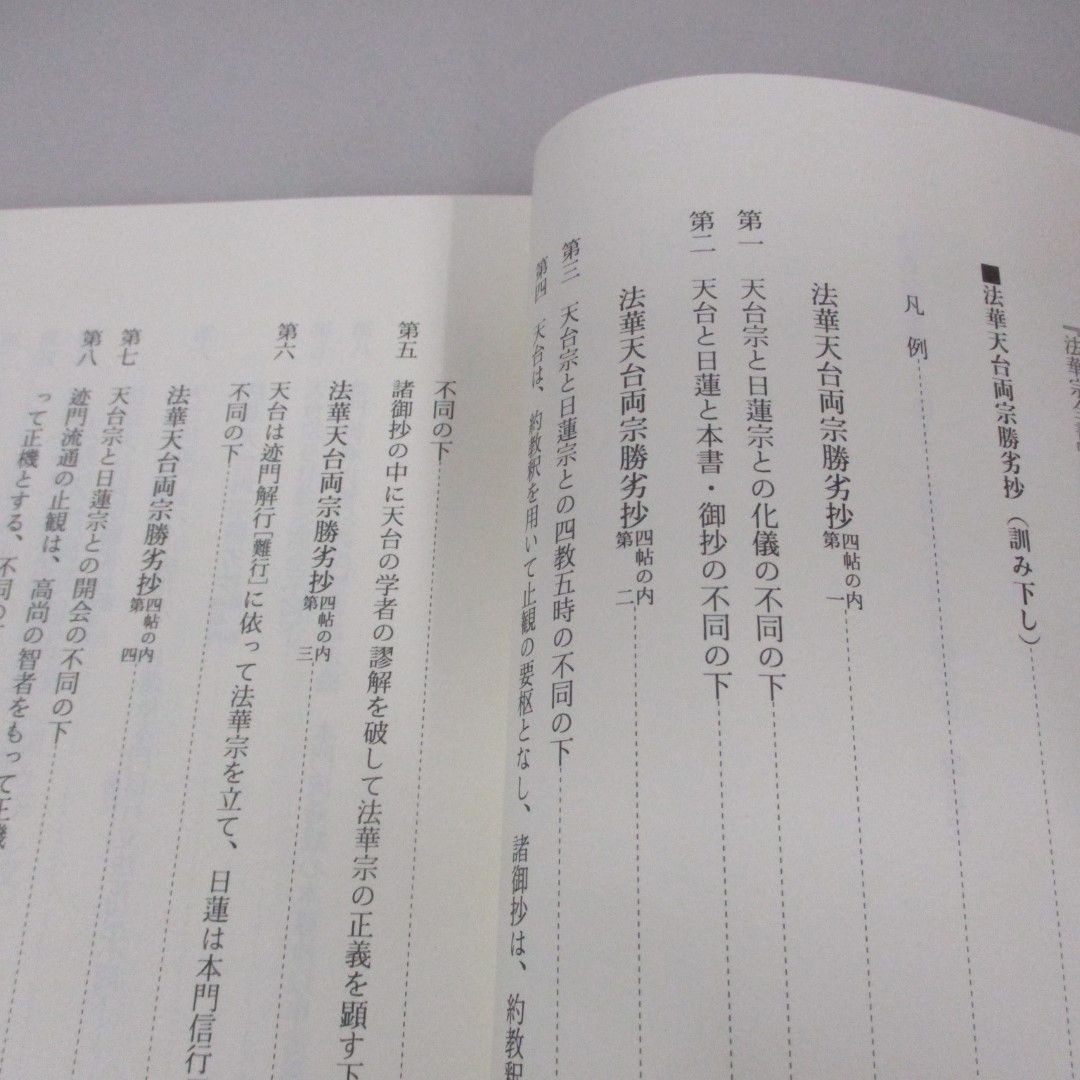 ■法華天台両宗勝劣抄（訓み下し）
凡例
法華天台両宗勝劣抄 四帖の内 第一
第一 天台宗と日蓮宗との化儀の不同の下
第二 天台と日蓮と本書・御抄の不同の下
法華天台両宗勝劣抄 四帖の内 第二
第三 天台宗と日蓮宗との四教五時の不同の下
第四 天台は、約教釈を用いて止観の要枢となし、諸御抄は、約教釈
不同の下
第五 諸御抄の中に天台の学者の謬解を破して法華宗の正義を顕す下
法華天台両宗勝劣抄 四帖の内 第三
第六 天台は迹門解行［難行］に依って法華宗を立て、日蓮は本門信行
不同の下
法華天台両宗勝劣抄 四帖の内 第四
第七 天台宗と日蓮宗との開会の不同の下
第八 迹門流通の止観は、高尚の智者をもって正機
って正機とする、不同の